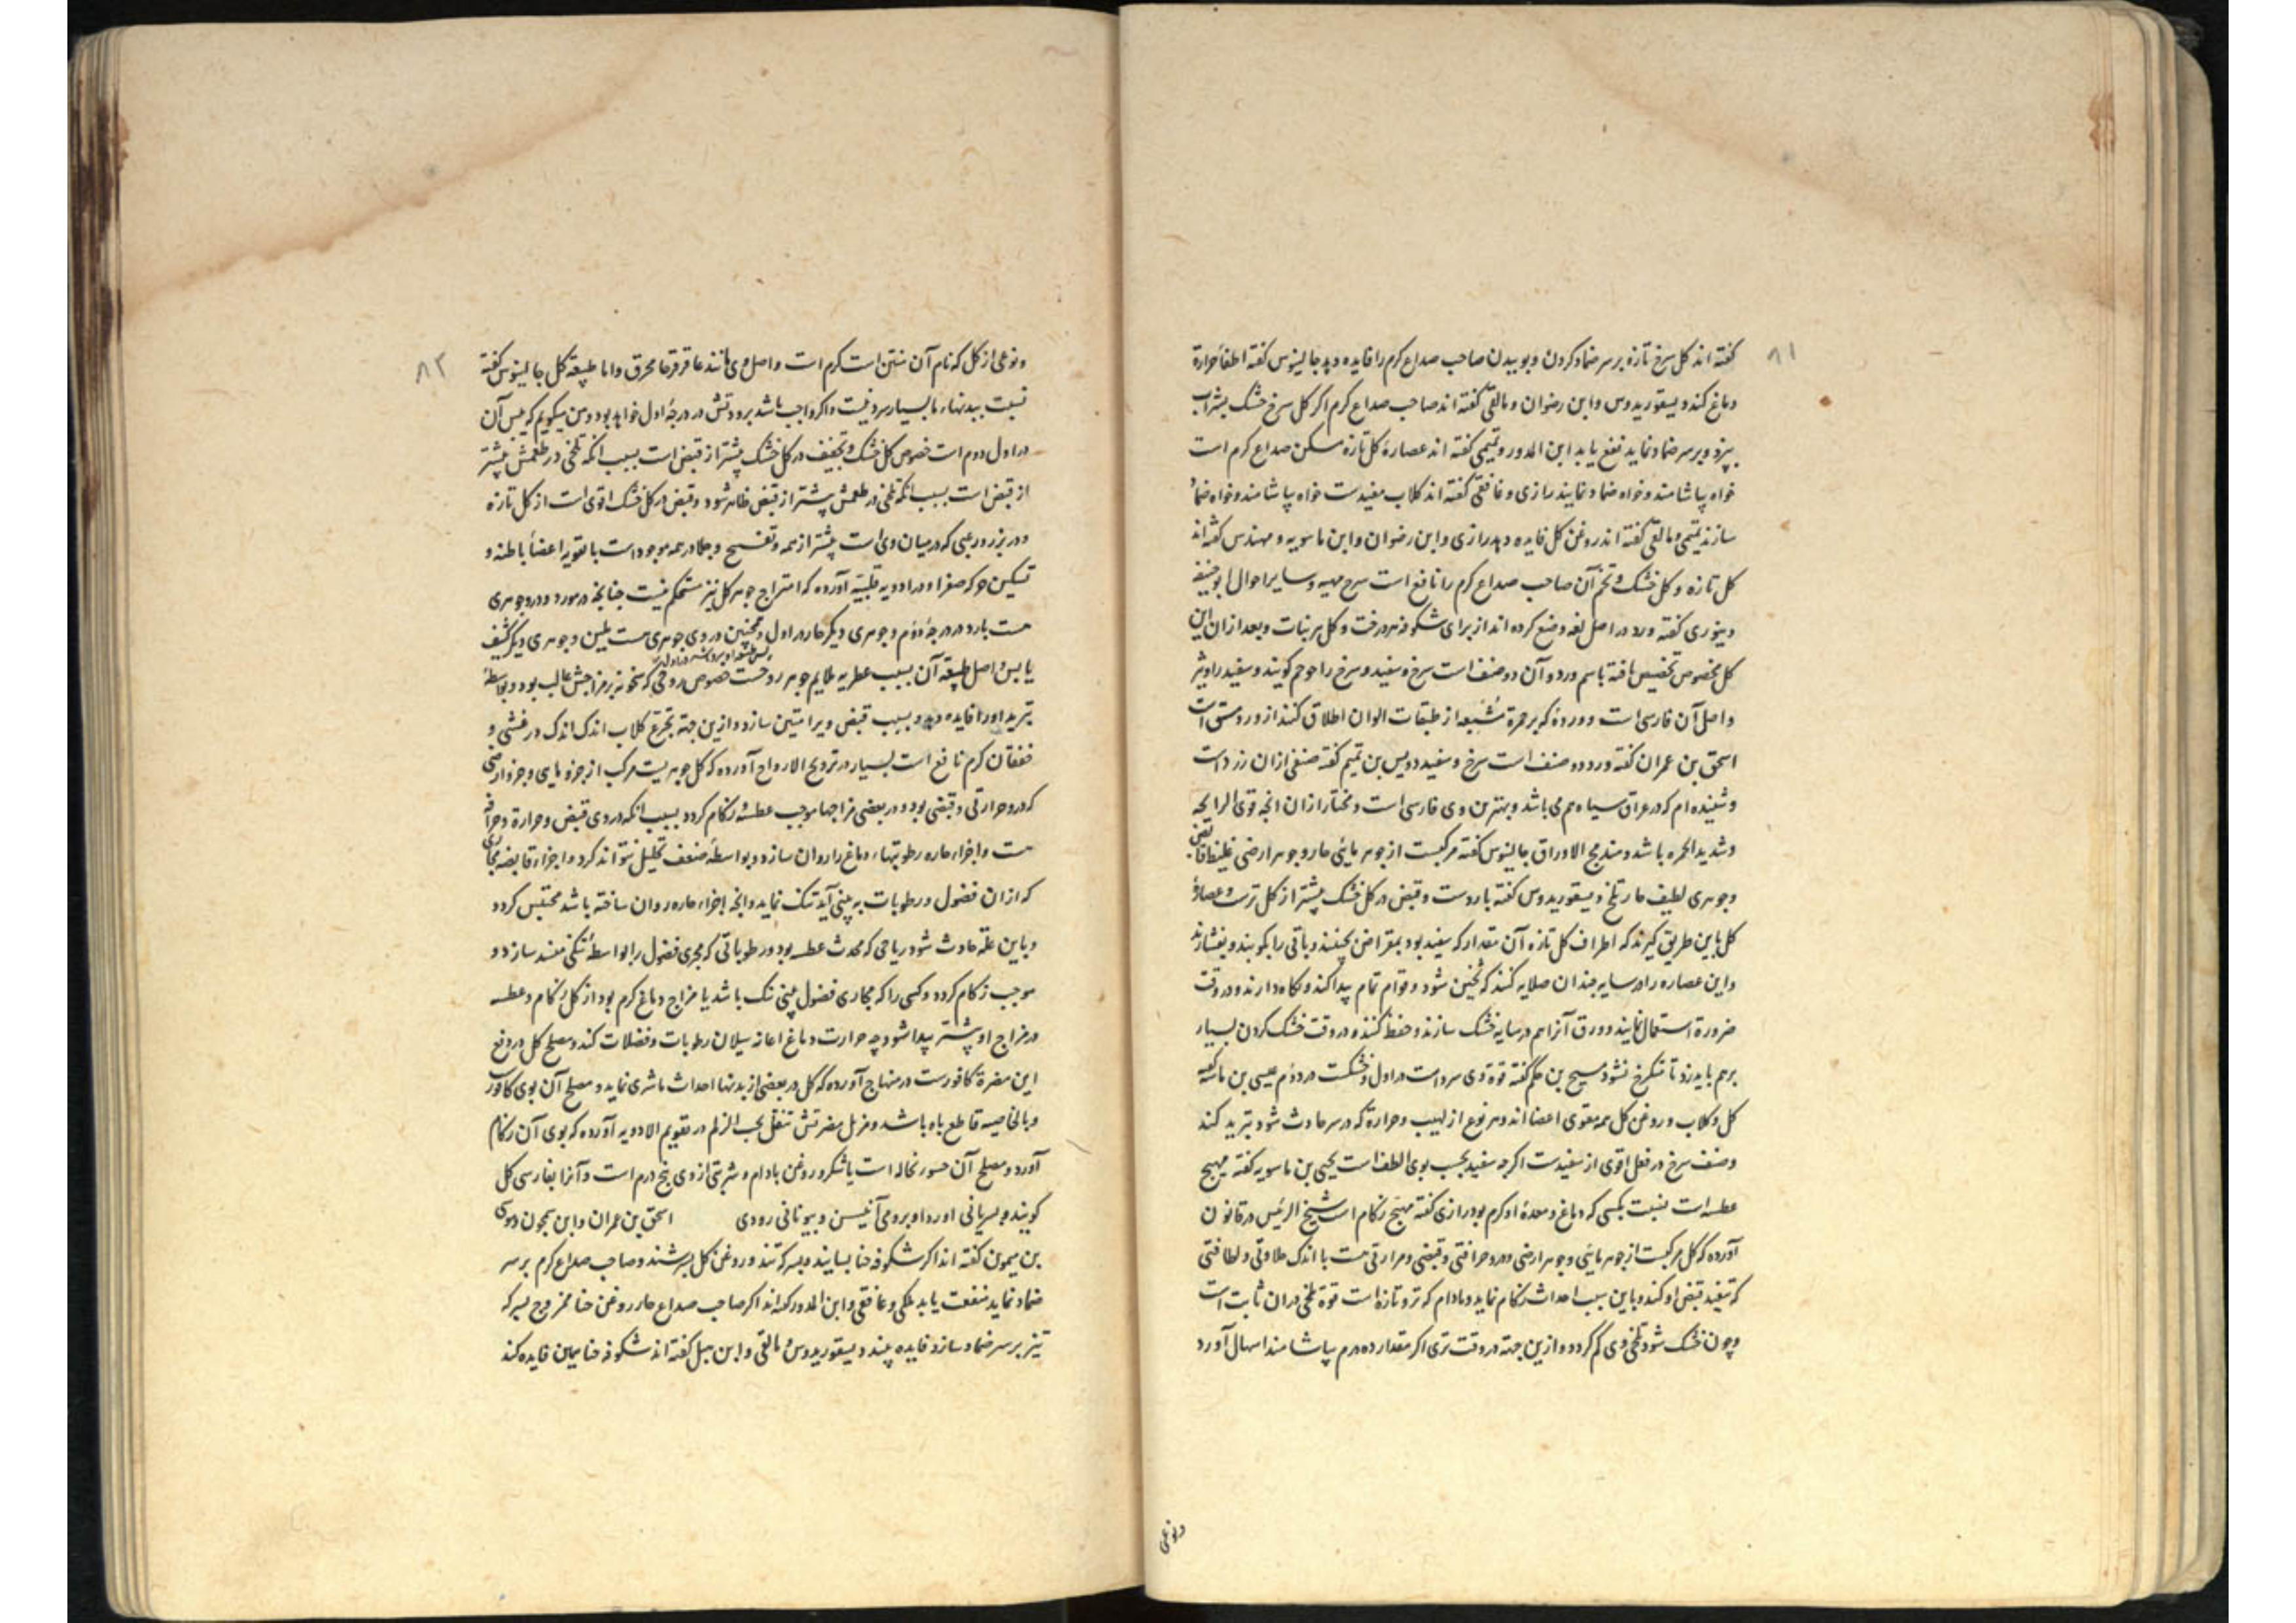 ۸۱
کفته اند کل سرخ تازه بر سر ضماد کردن و بوییدن صاحب صداع کرم را فایده دهد جالینوس کفته اطفأ حرارة
دماغ کند دیسقوریدوس و ابن رضوان و مالقی کفته اند صاحب صداع کرم اکر کل سرخ خشک بشراب
بپزد و بر سر ضماد نماید نفع یابد ابن المدور و تمیمی کفته اند عصارۀ کل تازه مسکن صداع کرم است
خواه بیاشامند و خواه ضماد نمایند رازی و غافقی کفته اند کلاب مفیدست خواه بیاشامند و خواه ضماد
سازند تمیمی و مالقی کفته اند روغن کل فایده دهد رازی و ابن رضوان و ابن ماسویه و مهندس کفته اند
کل تازه و کل خشک و تخم آن صاحب صداع کرم را نافع است شرح مهیه و سایر احوال ابو حنیفه
دینوری کفته ورد در اصل لغه وضع کرده اند از برای شکوفه هر درخت و کل هر نبات و بعد ازان این
کل مخصوص تخصیص یافته باسم ورد و آن دو صنف است سرخ و سفید و سرخ را حوجم کویند و سفید را وثیر
و اصل آن فارسی است و وردۀ که بر حمرة مشبعه از طبقات الوان اطلاق کنند از ورد مشتق است
اسحق بن عمران کفته ورد دو صنف است سرخ و سفید دویس بن تمیم کفته صنفی ازان زردست
و شنیده ام که در عراق سیاه هم می باشد و بهترین وی فارسی است و مختار ازان انچه قوی الرایحه
و شدید الحمره باشد و مندمج الاوراق جالینوس کفته مرکبست از جوهر مائی حار و جوهر ارضی غلیظ قابض
و جوهری لطیف حار تلخ دیسقوریدوس کفته باردست و قبض در کل خشک بیشتر از کل ترست و عصارۀ
کل باین طریق کیرند که اطراف کل تازه آن مقدار که سفید بود بمقراض بچینند و باقی را بکوبند و بفشارند
و این عصاره را در سایه چندان صلایه کنند که ثخین شود و قوام تمام پیدا کند و نکاه دارند و در وقت
ضرورة استعمال نمایند و ورق آنرا هم در سایه خشک سازند و حفظ کنند و در وقت خشک کردن بسیار
بر هم باید زد تا متکرج نشود مسیح بن حکم کفته قوة وی سردست در اول و خشکست در دوم عیسی بن ماسه کفته
کل و کلاب و روغن کل همه مقوی اعضا اند و هر نوع از لهیب و حرارة که در سر حادث شود تبرید کند
و صنف سرخ در فعل اقوی از سفیدست اکرچه سفید بحسب بوی الطف است یحیی بن ماسویه کفته مهیج
عطسه است بنسبت بکسی که دماغ و معدۀ او کرم بود رازی کفته مهیج زکام است شیخ الرئیس در قانون
آورده که کل مرکبست از جوهر مائی و جوهر ارضی و درو حرافتی و قبضی و مرارتی هست با اندک حلاوتی و لطافتی
که تنفیذ قبض او کند و باین سبب احداث زکام نماید و مادام که تر و تازه است قوة تلخی دران ثابت است
و چون خشک شود تلخی وی کم کردد و ازین جهة در وقت تری اکر مقدار ده درم بیاشامند اسهال آورد
و نوعی
۸۲
و نوعی از کل که نام آن منتن است کرم است و اصل وی مانند عاقرقرحا محرق و اما طبیعة کل جالینوس کفته
نسبت ببدنهاء ما بسیار سرد نیست و اکر واجب باشد برودتش در درجۀ اول خواهد بود و من میکویم که یبس آن
در اول دوم است خصوص کل خشک و تجفیف در کل خشک بیشتر از قبض است بسبب انکه تلخی در طعمش بیشتر
از قبض است بسبب انکه تلخی در طعمش بیشتر از قبض ظاهر شود و قبض در کل خشک اقوی است از کل تازه
و در بزر و زغبی که در میان وی است بیشتر از همه و تفتیح و جلا در همه موجود است با تقویة اعضأ باطنه و
تسکین حرکة صفرا و در ادویه قلبیة آورده که امتراج جوهر کل نیز مستحکم نیست چنانچه در مورد و درو جوهری
هست بارد در درجۀ دوم و جوهری دیکر حار در اول و همچنین در وی جوهری هست ملین و جوهری دیکر کثیف
یابس و اصل طبیعة آن بسبب عطریه ملایم جوهر روحست خصوص روحی که سخونة بر مزاجش غالب بود و بواسطۀ
تبرید او را فایده دهد و بسبب قبض ویرا متین سازد و ازین جهة تجرع کلاب اندک اندک در غشی و
خفقان کرم نافع است بسیار در ترویح الارواح آورده که کل جوهریست مرکب از جزو مایی و جزو ارضی
که درو حرارتی و قبضی بود و در بعضی مزاجها موجب عطسه و زکام کردد بسبب انکه در وی قبض و حرارة و حرافة
هست و اجزاء حاره رطوبتهاء دماغ را روان سازد و بواسطۀ ضعف تحلیل نتواند کرد و اجزاء قابضه مجاری
که ازان فضول و رطوبات به بینی آید تنک نماید و انچه اجزاء حاره روان ساخته باشد محتبس کردد
و باین علة حادث شود ریاحی که محدث عطسه بود و رطوباتی که مجری فضول را بواسطۀ تنکی مفسد سازد و
موجب زکام کردد و کسی را که مجاری فضول بینی تنک باشد یا مزاج دماغ کرم بود از کل زکام و عطسه
در مزاج او بیشتر پیدا شود چه حرارت دماغ اعانه سیلان رطوبات و فضلات کند و مصلح کل در دفع
این مضرة کافورست در منهاج آورده که کل در بعضی از بدنها احداث ماشری نماید و مصلح آن بوی کافورست
و بالخاصیه قاطع باه باشد و مزیل مضرتش تنقل بحب الزلم در تقویم الادویه آورده که بوی آن زکام
آورد و مصلح آن حسو نخاله است با شکر و روغن بادام و شربتی از وی پنج درم است و آنرا بفارسی کل
کویند و بسریانی اوردا و برومی آنئیسن و بیونانی رودی اسحق بن عمران و ابن بجون و موسی
بن میمون کفته اند اکر شکوفه حنا بسایند و بسرکه تند و روغن کل بسرشند و صاحب صداع کرم بر سر
ضماد نماید منفعت یابد علکی و غافقی و ابن المدور کفته اند اکر صاحب صداع حار روغن حنا ممزوج بسرکه
تیز بر سر ضماد سازد فایده بیند دیسقوریدوس و مالقی و ابن جبل کفته اند شکوفه حنا بهمان فایده کند